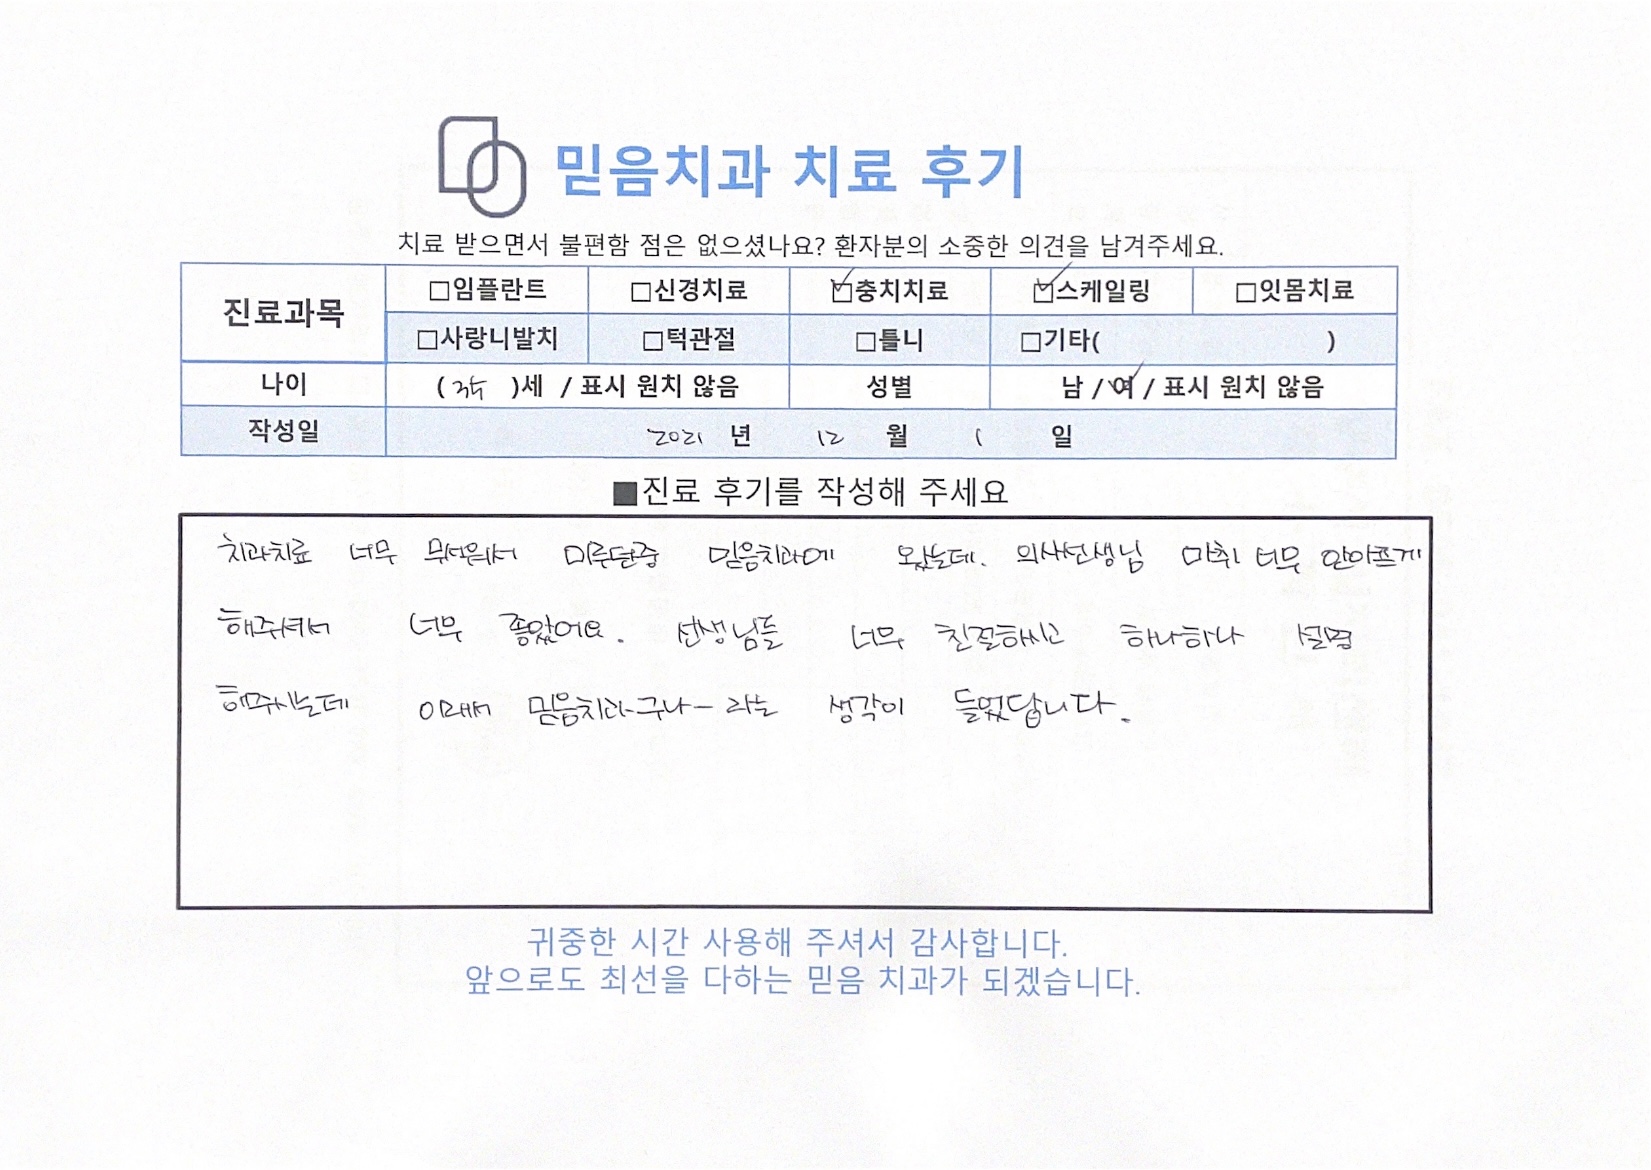 믿음치과 치료 후기
치료 받으면서 불편함 점은 없으셨나요? 환자분의 소중한 의견을 남겨주세요.
진료과목 □임플란트 □신경치료 ☑충치치료 ☑스케일링 □잇몸치료
□사랑니발치 □턱관절 □틀니 □기타( )
나이 ( 35 )세 / 표시 원치 않음 성별 남 / 여 / 표시 원치 않음
작성일 2021 년 12 월 1 일
■진료 후기를 작성해 주세요
치과치료 너무 무서워서 미루던중 믿음치과에 왔는데. 의사선생님 마취 너무 안아프게
해주셔서 너무 좋았어요. 선생님들 너무 친절하시고 하나하나 설명
해주시는데 이래서 믿음치과구나- 라는 생각이 들었답니다.
귀중한 시간 사용해 주셔서 감사합니다.
앞으로도 최선을 다하는 믿음 치과가 되겠습니다.